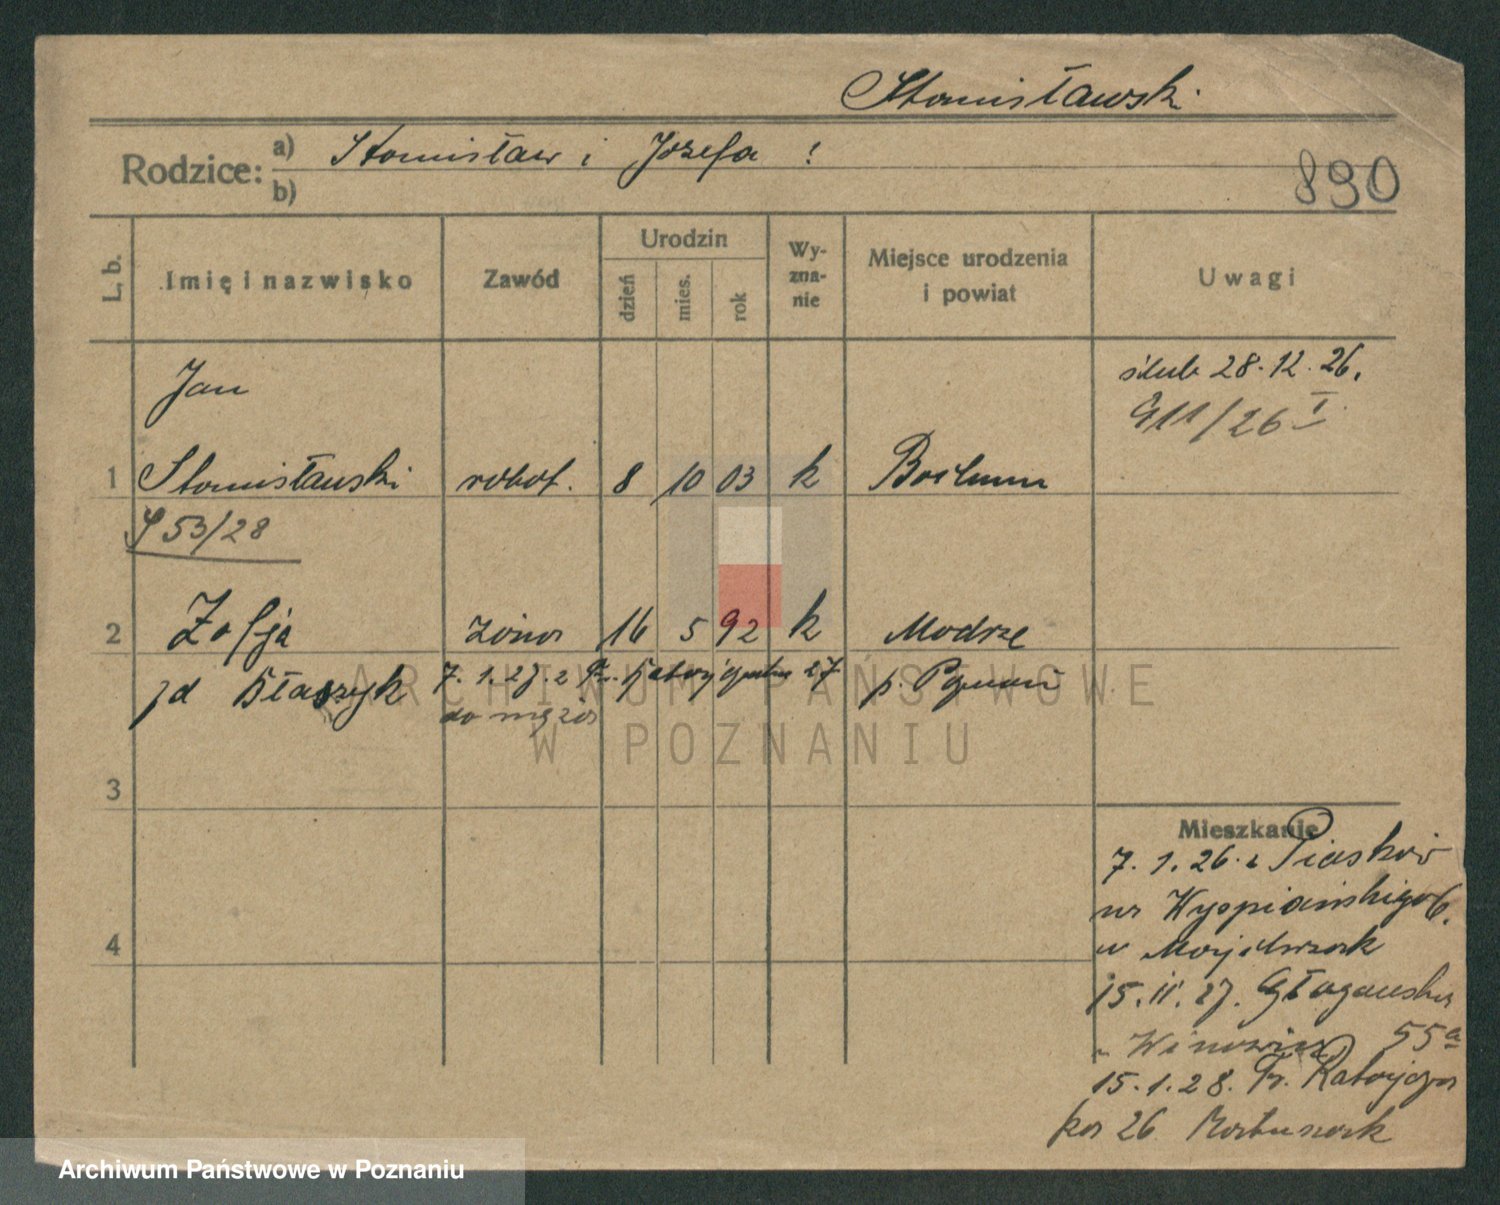 Stanisławski
Rodzice: a) Stanisław i Józefa !
b)
890
L. b. Imię i nazwisko Zawód Urodzin dzień mies. rok Wyznanie Miejsce urodzenia i powiat Uwagi
Jan
ślub 28.12.26.
911/26 I
1 Stanisławski robot. 8 10 03 k Bochum
S 53/28
2 Zofja żona 16 5 92 k Modrze
zd Błaszyk 7.1.27. z 27 p. Poznań
do męża
ARCHIWUM PAŃSTWOWE
W POZNANIU
3
Mieszkanie
7.1.26. z Piasków
na Wyspiańskiego 6.
u Majchrzak
4
15.11.27. Głogowska
55a
15.1.28. Fr. Ratajcza
ka 26
Archiwum Państwowe w Poznaniu